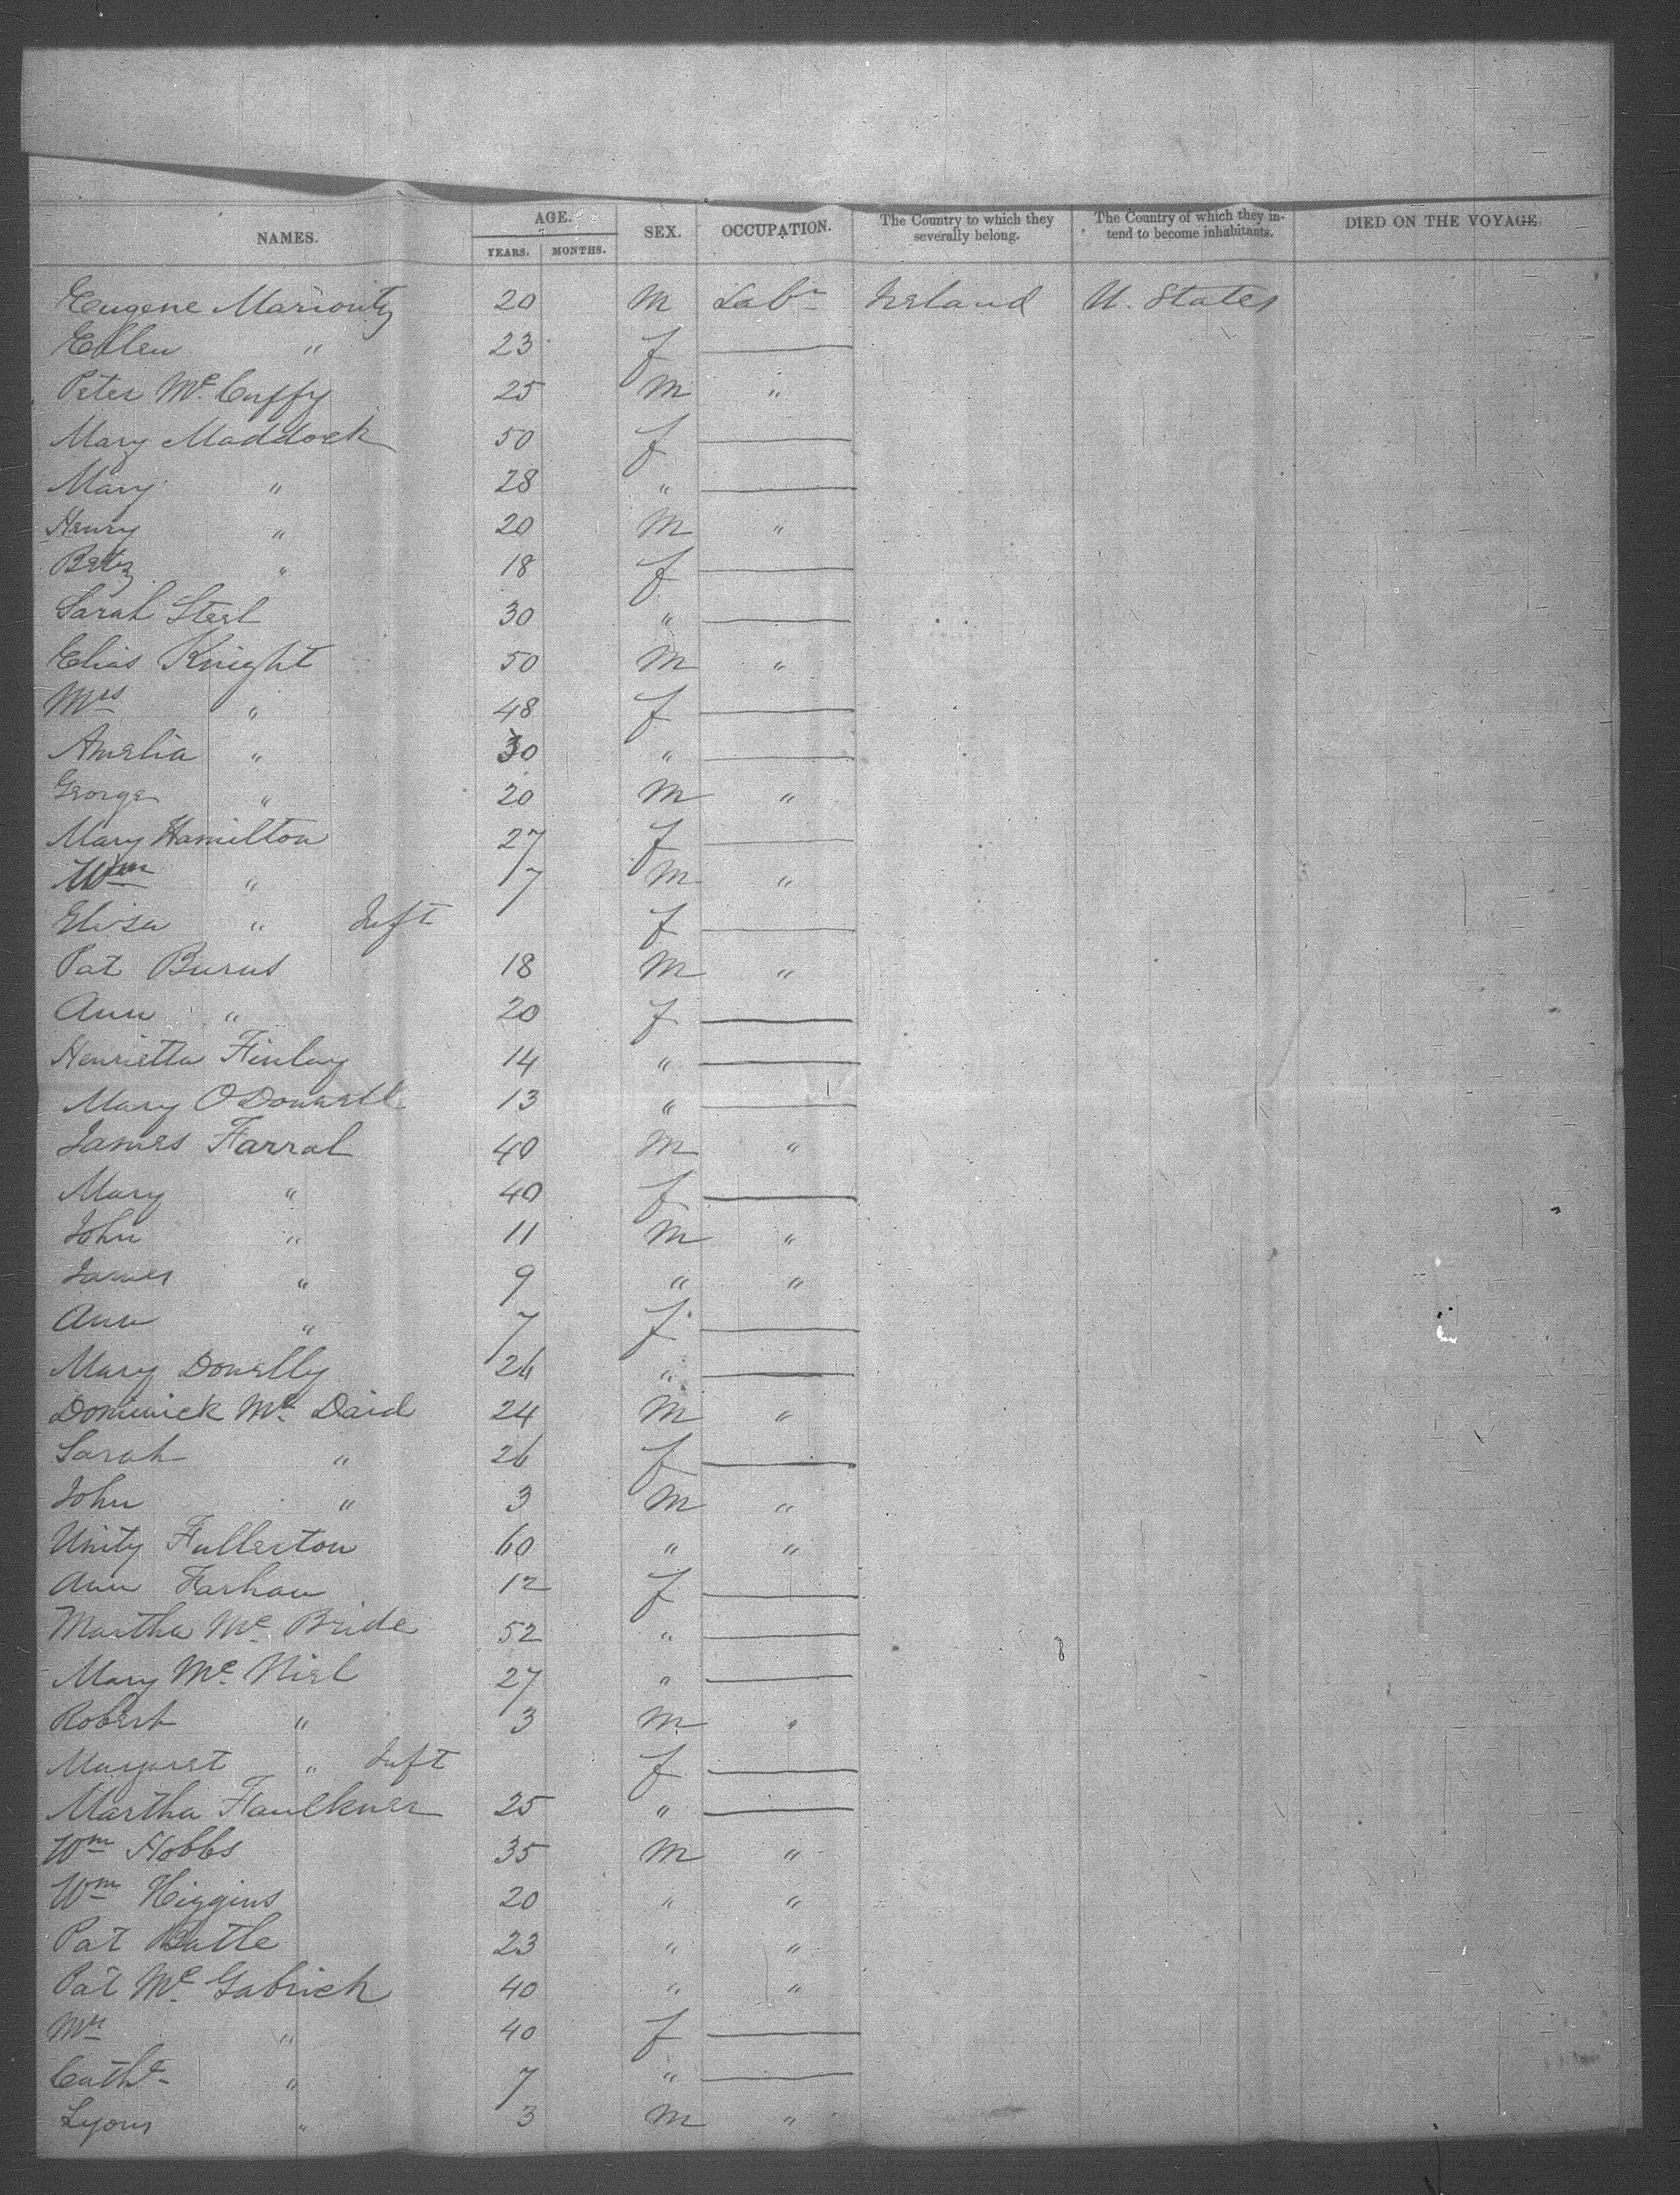 NAMES. AGE. YEARS. MONTHS. SEX. OCCUPATION. The Country to which they severally belong. The Country of which they intend to become inhabitants. DIED ON THE VOYAGE.
Eugene 20 M Labr Ireland U. States
Ellen " 23 f —
Peter Mc Caffy 25 M "
Mary Maddock 50 f —
Mary " 28 " —
Henry " 20 M "
Betz " 18 f —
Sarah Steel 30 " —
Elias Knight 50 M "
Mrs " 48 f —
Amelia " 30 " —
George " 20 M "
Mary Hamilton 27 f —
Wm " 7 M "
Eliza " Inft f —
Pat Burns 18 M "
Ann " 20 f —
Henrietta Finlay 14 " —
Mary ODonnell 13 " —
James Farral 40 M "
Mary " 40 f —
John " 11 M "
James " 9 " "
Ann " 7 f —
Mary Donelly 26 " —
Dominick Mc Daid 24 M "
Sarah " 26 f —
John " 3 M "
Unity Fullerton 60 " "
Ann Farhan 12 f —
Martha Mc Bride 52 " —
Mary Mc Niel 27 " —
Robert " 3 M "
Margaret " Inft f —
Martha Faulkner 25 " —
Wm Hobbs 35 M "
Wm Higgins 20 " "
Pat Batle 23 " "
Pat Mc Gabrick 40 " "
Mrs " 40 f —
Cathe " 7 " —
Lyons " 3 M "